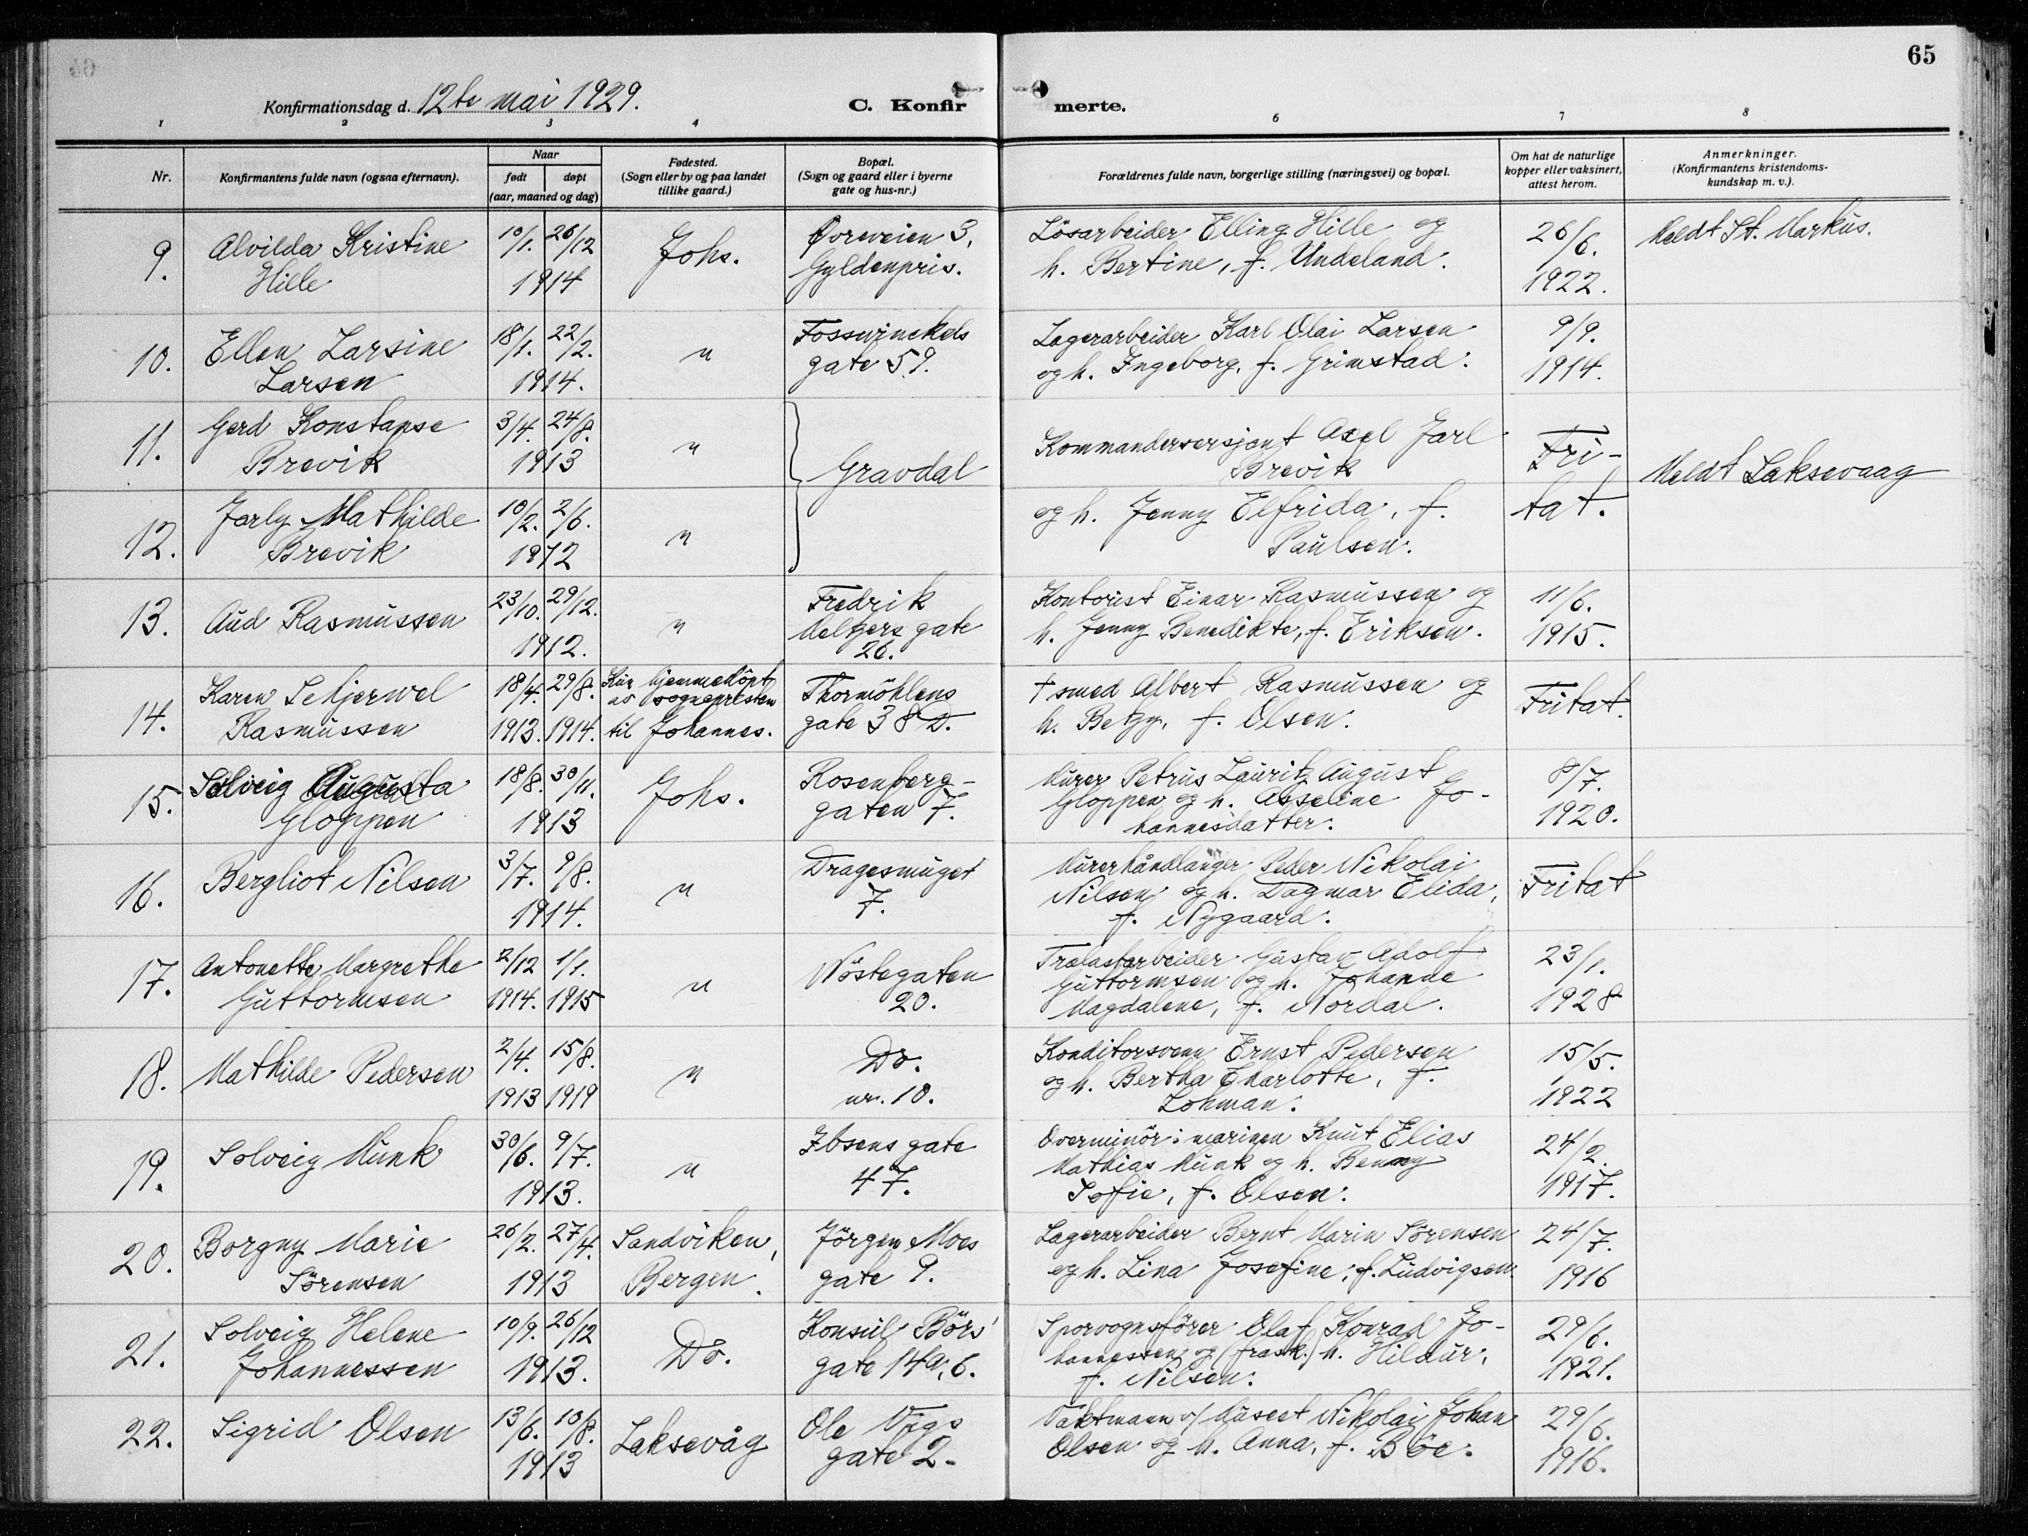 65
Konfirmationsdag d. 12te mai 1929.
C. Konfirmerte.
1 2 3 4 6 7 8
Nr.
Konfirmantens fulde navn (ogsaa efternavn).
Naar
født døpt
(aar, maaned og dag)
Fødested.
(Sogn eller by og paa landet
tillike gaard.)
Bopæl.
(Sogn og gaard eller i byerne
gate og hus-nr.)
Forældrenes fulde navn, borgerlige stilling (næringsvei) og bopæl.
Om hat de naturlige
kopper eller vaksinert,
attest herom.
Anmerkninger.
(Konfirmantens kristendoms-
kundskap m. v.).
9. Alvilda Kristine
Hille
10/1. 26/12
1914
Johs.
Øvreveien 3,
Gyldenpris.
Lösarbeider Elling Hille og
h. Bertine, f. Undeland.
26/6.
1922.
Meldt St. Markus.
10. Ellen Larsine
Larsen
18/1. 22/2.
1914.
"
Fosswinckels
gate 59.
Lagerarbeider Karl Olai Larsen
og h. Ingeborg, f. Grimstad.
9/9.
1914.
11. Gerd Konstanse
Brevik
3/4. 24/8.
1913
"
Gravdal
Kommandersersjent Axel Jarl
Brevik
Fri-
Meldt Laksevaag
12. Jarly Mathilde
Brevik
10/2. 2/6.
1912
"
og h. Jenny Elfrida, f.
Paulsen.
tat.
13. Aud Rasmussen
23/10. 29/12.
1912.
"
Fredrik
Meltzers gate
26.
Kontorist Einar Rasmussen og
h. Jenny Benedikte, f. Eriksen.
11/6.
1915.
14. Karen Schjerwel
Rasmussen
18/4. 29/8.
1913. 1914.
hjemmedöpt
av sognepresten
til Johannes.
Thormöhlens
gate 38 D.
† smed Albert Rasmussen og
h. Betzy, f. Olsen.
Fritat.
15. Solveig Augusta
Gloppen
18/8. 30/11.
1913
Johs.
Rosenberg-
gaten 7.
Murer Petrus Lauritz August
Gloppen og h. Asseline Jo-
hannesdatter.
8/7.
1920.
16. Bergliot Nilsen
3/7. 9/8.
1914.
"
Dragesmuget
7.
Murerhåndlanger Peder Nikolai
Nilsen og h. Dagmar Elida,
f. Nygaard.
Fritat
17. Antonette Margrethe
Guttormsen
2/12 1/1.
1914. 1915
"
Nöstegaten
20.
Trælastarbeider Gustav Adolf
Guttormsen og h. Johanne
Magdalene, f. Nordal.
23/1.
1928
18. Mathilde Pedersen
2/4. 15/8.
1913 1919
"
Do.
nr. 10.
Konditorsvenn Ernst Pedersen
og h. Bertha Charlotte, f.
Lohman.
15/5.
1922
19. Solveig Munk
30/6. 9/7.
1913.
"
Ibsens gate
47.
Overminör i marinen Knut Elias
Mathias Munk og h. Benny
Sofie, f. Olsen.
24/2.
1917.
20. Borgny Marie
Sörensen
26/2. 27/4.
1913
Sandviken,
Bergen.
Jörgen Moes
gate 9.
Lagerarbeider Bernt Marin Sörensen
og h. Lina Josefine, f. Ludvigsen.
24/7.
1916
21. Solveig Helene
Johannessen
10/9. 26/12
1913.
Do.
Konsul Börs'
gate 14a, 6.
Sporvognsförer Olaf Konrad Jo-
hannessen og (frask.) h. Hildur,
f. Nilsen.
29/6.
1921.
22. Sigrid Olsen
13/6. 10/8.
1913
Laksevåg
Ole Vigs
gate 2.
Vaktmann v/ Museet Nikolai Johan
Olsen og h. Anna, f. Böe.
29/6.
1916.